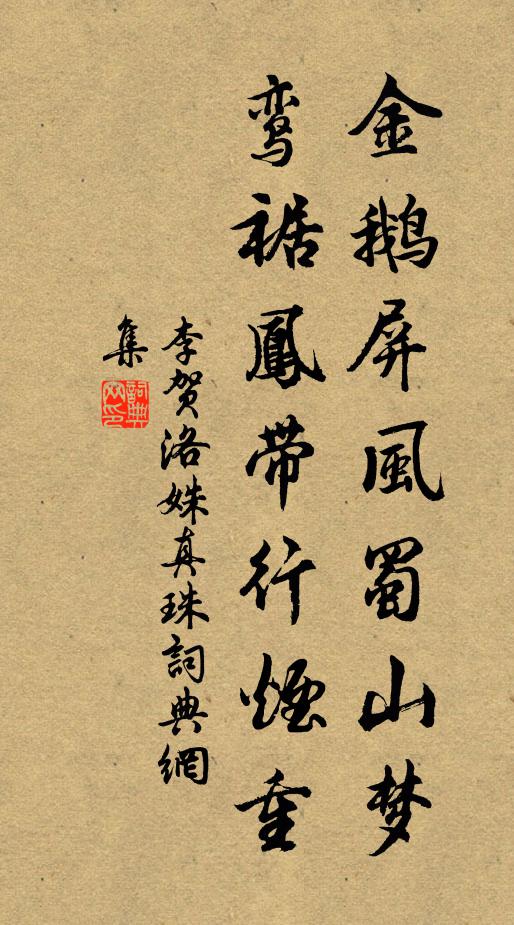 金鹅屏風蜀山梦
鸾裾鳳帶行煙重
李贺洛姝真珠詞典網
集
詞典網印